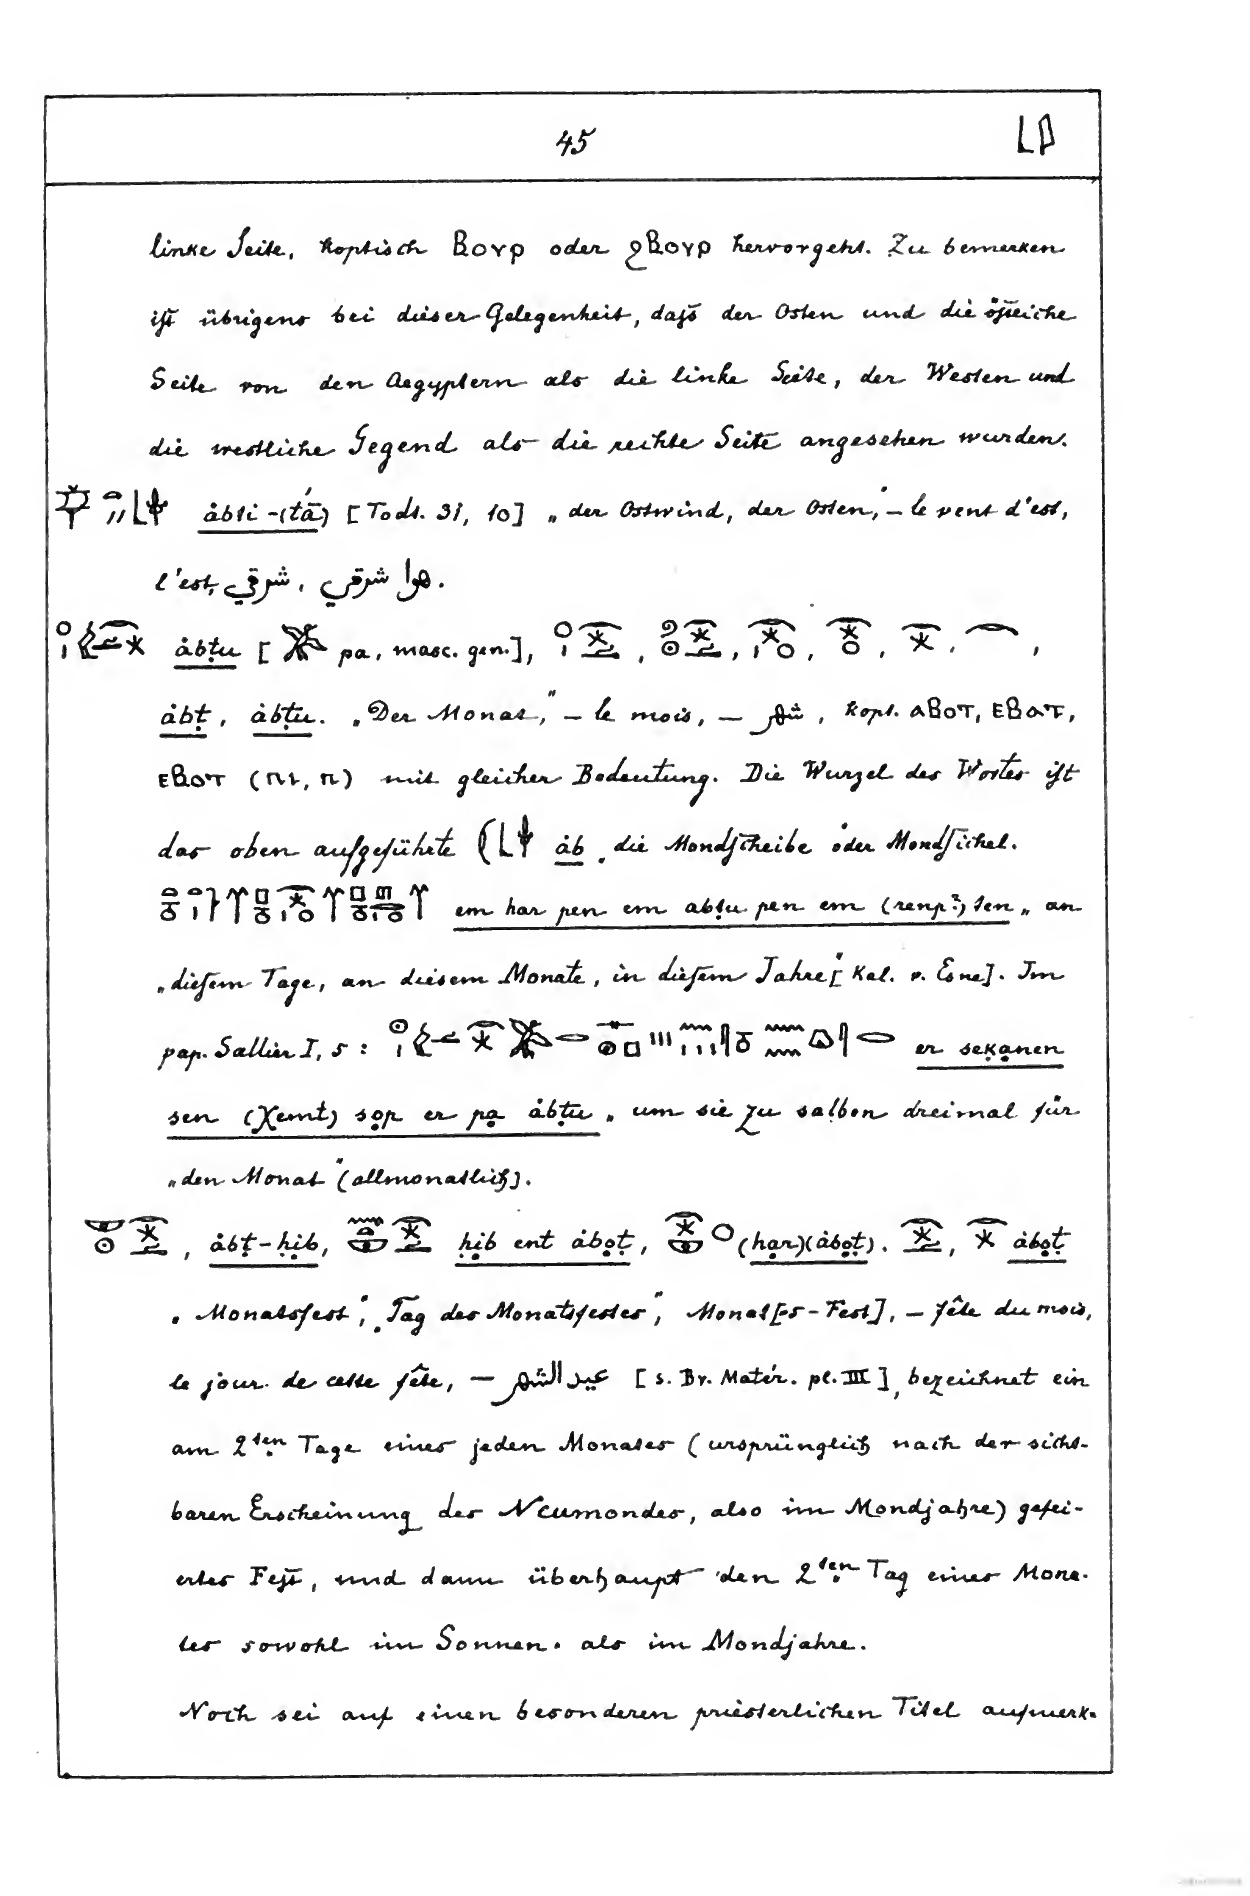 45
linke Seite, koptisch ⲃⲟⲩⲣ oder ϩⲃⲟⲩⲣ hervorgeht. Zu bemerken
ist übrigens bei dieser Gelegenheit, daſs der Osten und die östliche
Seite von den Aegyptern als die linke Seite, der Westen und
die westliche Gegend als die rechte Seite angesehen wurden.
åbti-(tá) [Todt. 31, 10] „der Ostwind, der Osten," – le vent d'est,
l'est, شرقي , هوا شرقي.
åbṭu [ pa, masc. gen.],
åbṭ, åbṭu. „Der Monat," – le mois, – شهر, kopt. ⲁⲃⲟⲧ, ⲉⲃⲁⲧ,
ⲉⲃⲟⲧ (ⲡⲓ, ⲡ) mit gleicher Bedeutung. Die Wurzel des Wortes ist
das oben aufgeführte åb „die Mondscheibe" oder Mondsichel.
em har pen em abṭu pen em (renp?) ten „an
„diesem Tage, an diesem Monate, in diesem Jahre" [Kal. v. Esne]. Im
pap. Sallier I, 5 : er seḳanen
sen (χemt) sop er pa åbṭu „um sie zu salben dreimal für
„den Monat" (allmonatlich).
åbṭ-ḥib, ḥib ent åboṭ, (har)(åboṭ). åboṭ
„Monatsfest", „Tag des Monatsfestes", Monat[s-Fest], – fête du mois,
le jour de cette fête, – عيد الشهر [s. Br. Matér. pl. III], bezeichnet ein
am 2ten Tage eines jeden Monates (ursprünglich nach der sicht-
baren Erscheinung des Neumondes, also im Mondjahre) gefei-
ertes Fest, und dann überhaupt den 2ten Tag eines Mona-
tes sowohl im Sonnen- als im Mondjahre.
Noch sei auf einen besonderen priesterlichen Titel aufmerk-